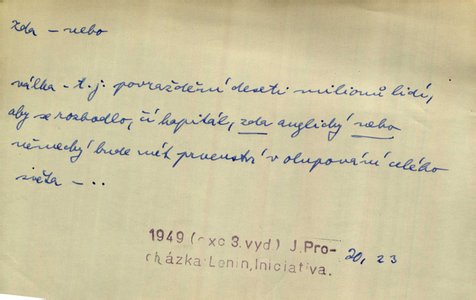 zda – nebo
válka – t. j. povraždění deseti milionů lidí,
aby se rozhodlo, čí kapitál, zda anglický nebo
německý bude mít prvenství v olupování celého
světa – ..
1949 (exc 3. vyd) J. Pro-
cházka: Lenin, Iniciativa.
20, 23